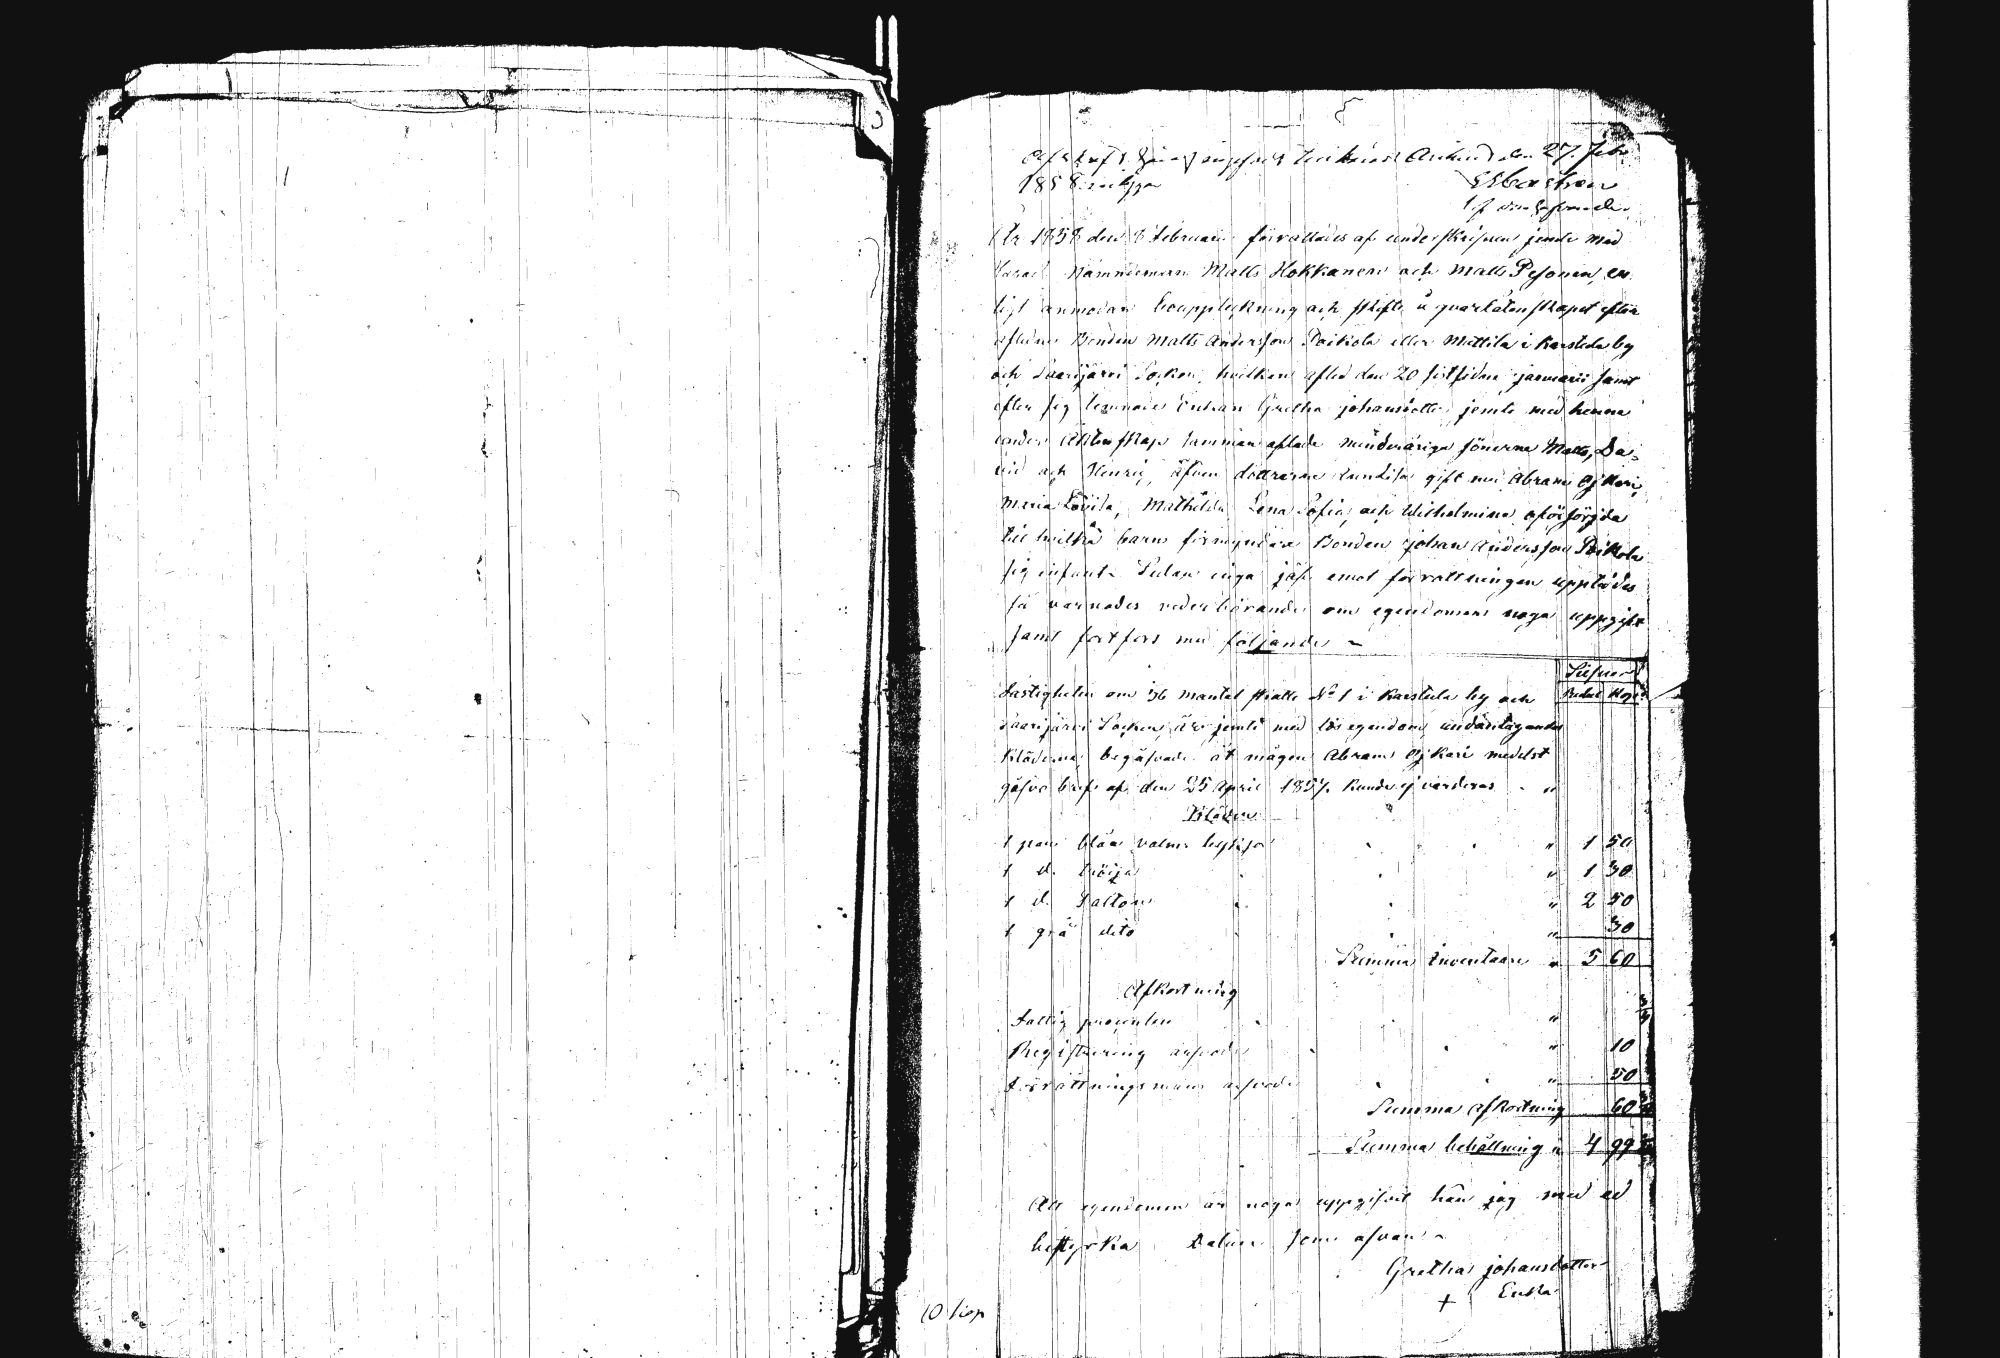 den 27. Febr
1858
År 1858 den 8 Februarii förrättades af underskrifven jemte med
Nämndeman Matts Hokkanen och Matts Pesonen, en
ligt anmodan bouppteckning och skifte å qvarlåtenskapet efter
aflidne Bonden Matts Andersson Poikola eller Mattila i Karstula by
och Saarijärvi Socken, hvilken afled den 20 sistlidne januarii samt
efter sig lemnade Enkan Gretha Johansdotter jemte med henne
under Äktenskap samman aflade minderåriga sönerne Matts, Da-
vid och Henric, äfven döttrarne gift med Abram Ojkari,
Maria Lovisa, Mathilda Lena Sofia, och Wilhelmina oförsörgda
till hvilka barns förmyndare Bonden Johan Andersson Poikola
sig infant. Sedan inga jäf emot förrättningen upplädes
så varnades vederbörande om egendomens noga uppgift
samt fortfors med följande
Silfver
Rubel Kop
Fastigheten om mantal skatte No 1 i Karstula by och
Saarijärvi Socken, är jemte med lös egendom, undantagande
Kläderna begåfvade åt mågen Abram Ojkari medelst
gåfvo bref af den 25 April 1857. kunde ej värderas "
Kläder
1 par blåa valms byxor " 1 50
1 d. tröija " 1 30
1 d. " 2 50
1 grå dito " 30
Summa Inventarii " 5 60
Afkortning
Fattig procenten " 3/4
Registrering arfvode " 10
Förrättningsmäns arfvode " 50
Summa afkortning 60 3/4
Summa behållning " 4 99 1/4
Att egendomen är noga uppgifvit kan jag med ed
bestyrka Datum som ofvan
Gretha Johansdotter
+ Enka
10 kop